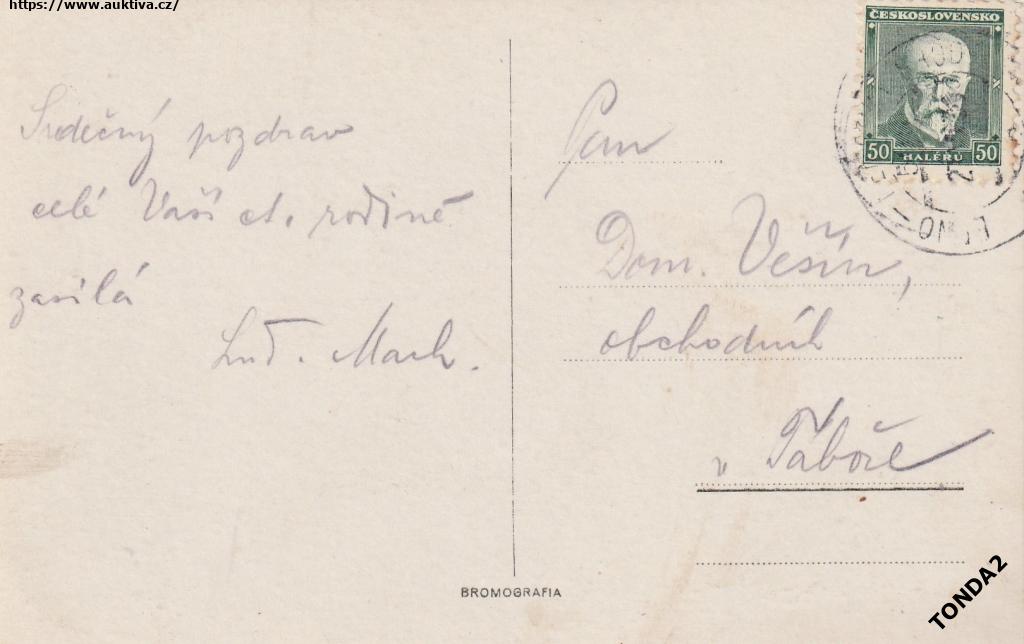 https://www.auktiva.cz/
Srdečný pozdrav
celé Vaší ct. rodině
zasílá
Lud. Mach.
Pan
Dom. Věšín,
obchodník
v Táboře
ČESKOSLOVENSKO
50 HALÉŘŮ 50
BRNO
BROMOGRAFIA
TONDA2